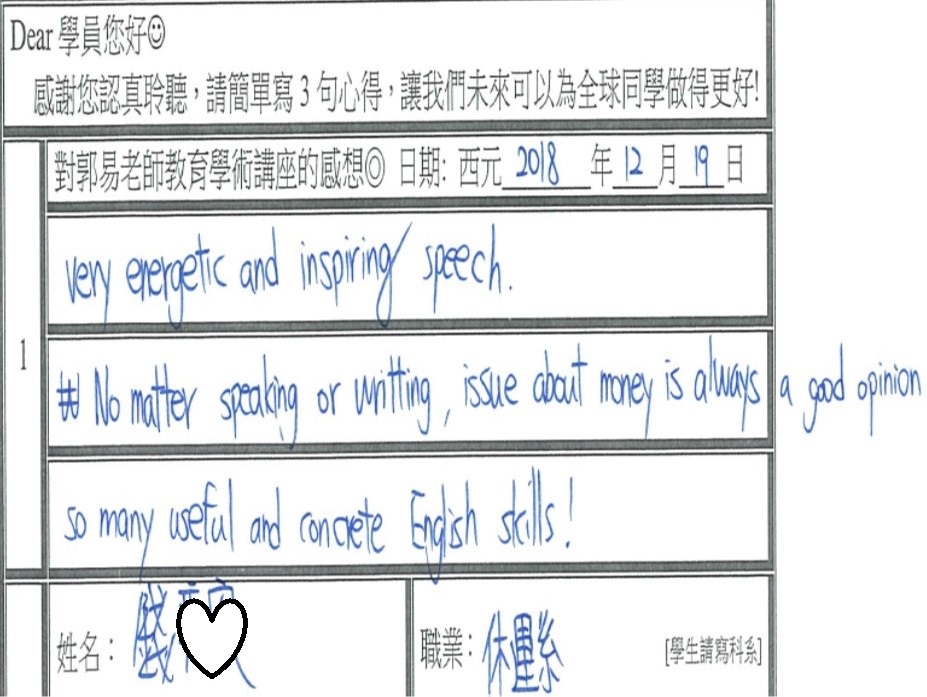 Dear 學員您好☺
感謝您認真聆聽，請簡單寫 3 句心得，讓我們未來可以為全球同學做得更好!
對郭易老師教育學術講座的感想◎ 日期: 西元 2018 年 12 月 19 日
very energetic and inspiring speech.
1
# No matter speaking or writting, issue about money is always a good opinion
so many useful and concrete English skills!
姓名： 錢
職業： 休運系 [學生請寫科系]